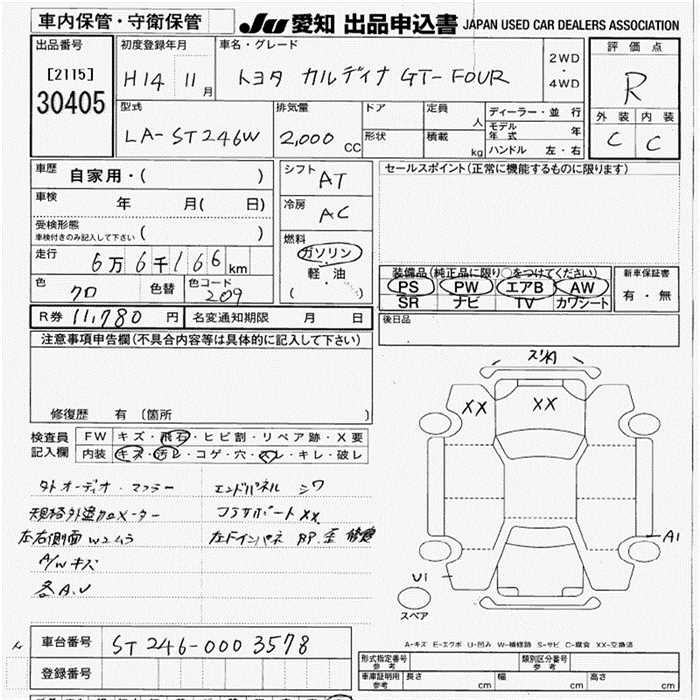 車内保管・守衛保管
JU 愛知 出品申込書 JAPAN USED CAR DEALERS ASSOCIATION
出品番号 初度登録年月 車名・グレード 2WD・4WD 評価点
[2115] H14 11月 トヨタ カルディナ GT-FOUR R
30405
型式 排気量 ドア 定員 人 ディーラー・並行 外装 内装
LA-ST246W 2,000 CC 形状 積載 kg モデル年式 年 C C
ハンドル 左・右
車歴 自家用・( ) シフト AT セールスポイント(正常に機能するものに限ります)
車検 年 月( 日) 冷房 AC
受検形態 車検付きのみ記入して下さい ( )
燃料 ガソリン 軽油 ( )
走行 6万6千166km
装備品(純正品に限り○をつけてください) 新車保証書
色 クロ 色替 色コード 209
PS PW エアB AW 有・無
SR ナビ TV カワシート
R券 11,780 円 名変通知期限 月 日 後日品
注意事項申告欄(不具合内容等は具体的に記入して下さい)
スリキズ
XX XX
修復歴 有 〔箇所 〕
検査員記入欄 FW キズ・飛石・ヒビ割・リペア跡・X要
内装 キズ・汚レ・コゲ・穴・スレ・キレ・破レ
外オーディオ・マフラー エンドパネル シワ
規格外盗クロメーター コラサポート XX
左右側面 W2ムラ
A/W キズ
各A.U
A1
U1
スペア
A-キズ E-エクボ U-凹み W-補修跡 S-サビ C-腐食 XX-交換済
車台番号 ST246-0003578
登録番号
形式指定番号 参考 類別区分番号 参考
車庫証明用 参考 長さ cm 幅 cm 高さ cm